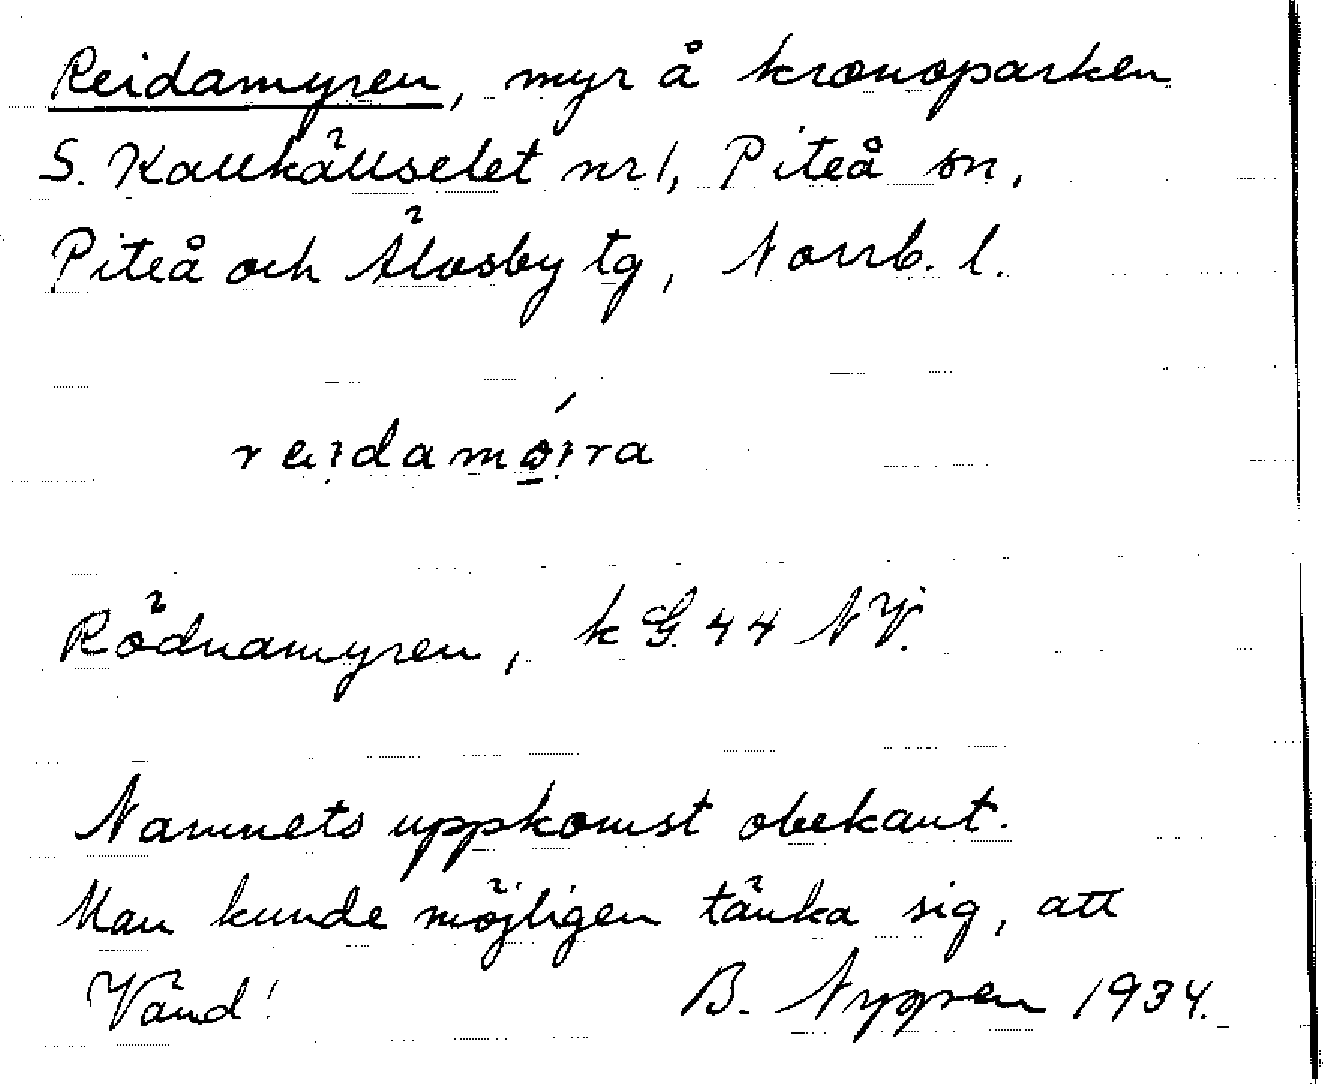 Reidamyren, myr å kronoparken
S. Kallkällselet nr 1, Piteå sn,
Piteå och Älvsby tg, Norrb. l.
reidamöira
Rödnamyren, k G. 44 NV.
Namnets uppkomst obekant.
Man kunde möjligen tänka sig, att
Vänd! B. Nygren 1934.